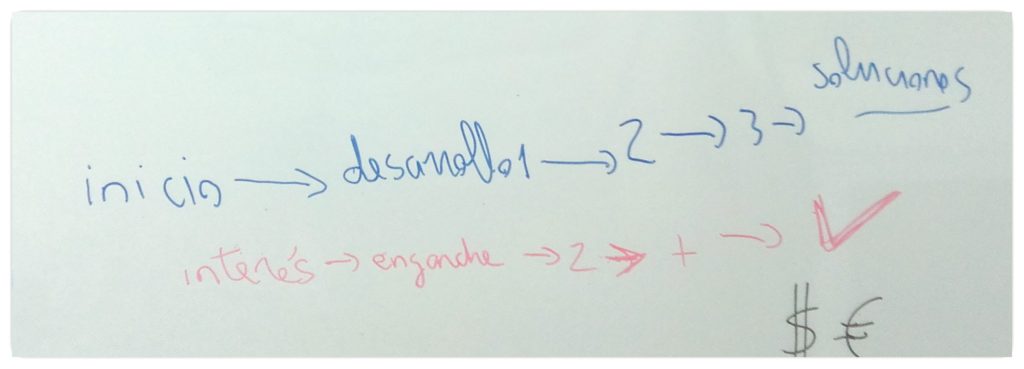 soluciones
inicio → desarrollo 1 → 2 → 3 →
interés → enganche → 2 → + → ✓
$ €